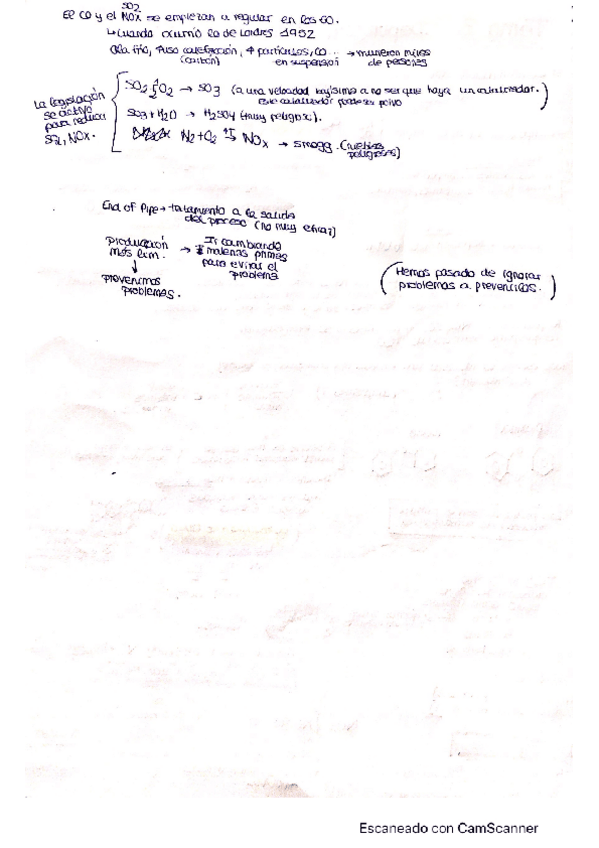 SO2
El CO y el NOx se empiezan a regular en los 60.
↳ cuando ocurrió lo de Londres 1952
Ola frío, ↑uso calefacción, ↑ partículas, CO... → murieron miles
(carbón) en suspensión de personas
La legislación
se activó
para reducir
SO2, NOx.
SO2 + ½O2 → SO3 (a una velocidad bajísima a no ser que haya un catalizador.
Este catalizador puede ser polvo)
SO3 + H2O → H2SO4 (muy peligroso).
N2 + O2 ⇅ NOx → smogg. (nieblas
peligrosas)
End of Pipe → tratamiento a la salida
del proceso (no muy eficaz)
Producción
más lim.
→ Ir cambiando
materias primas
para evitar el
problema
↓
prevenimos
problemas.
(Hemos pasado de ignorar
problemas a prevenirlos.)
Escaneado con CamScanner